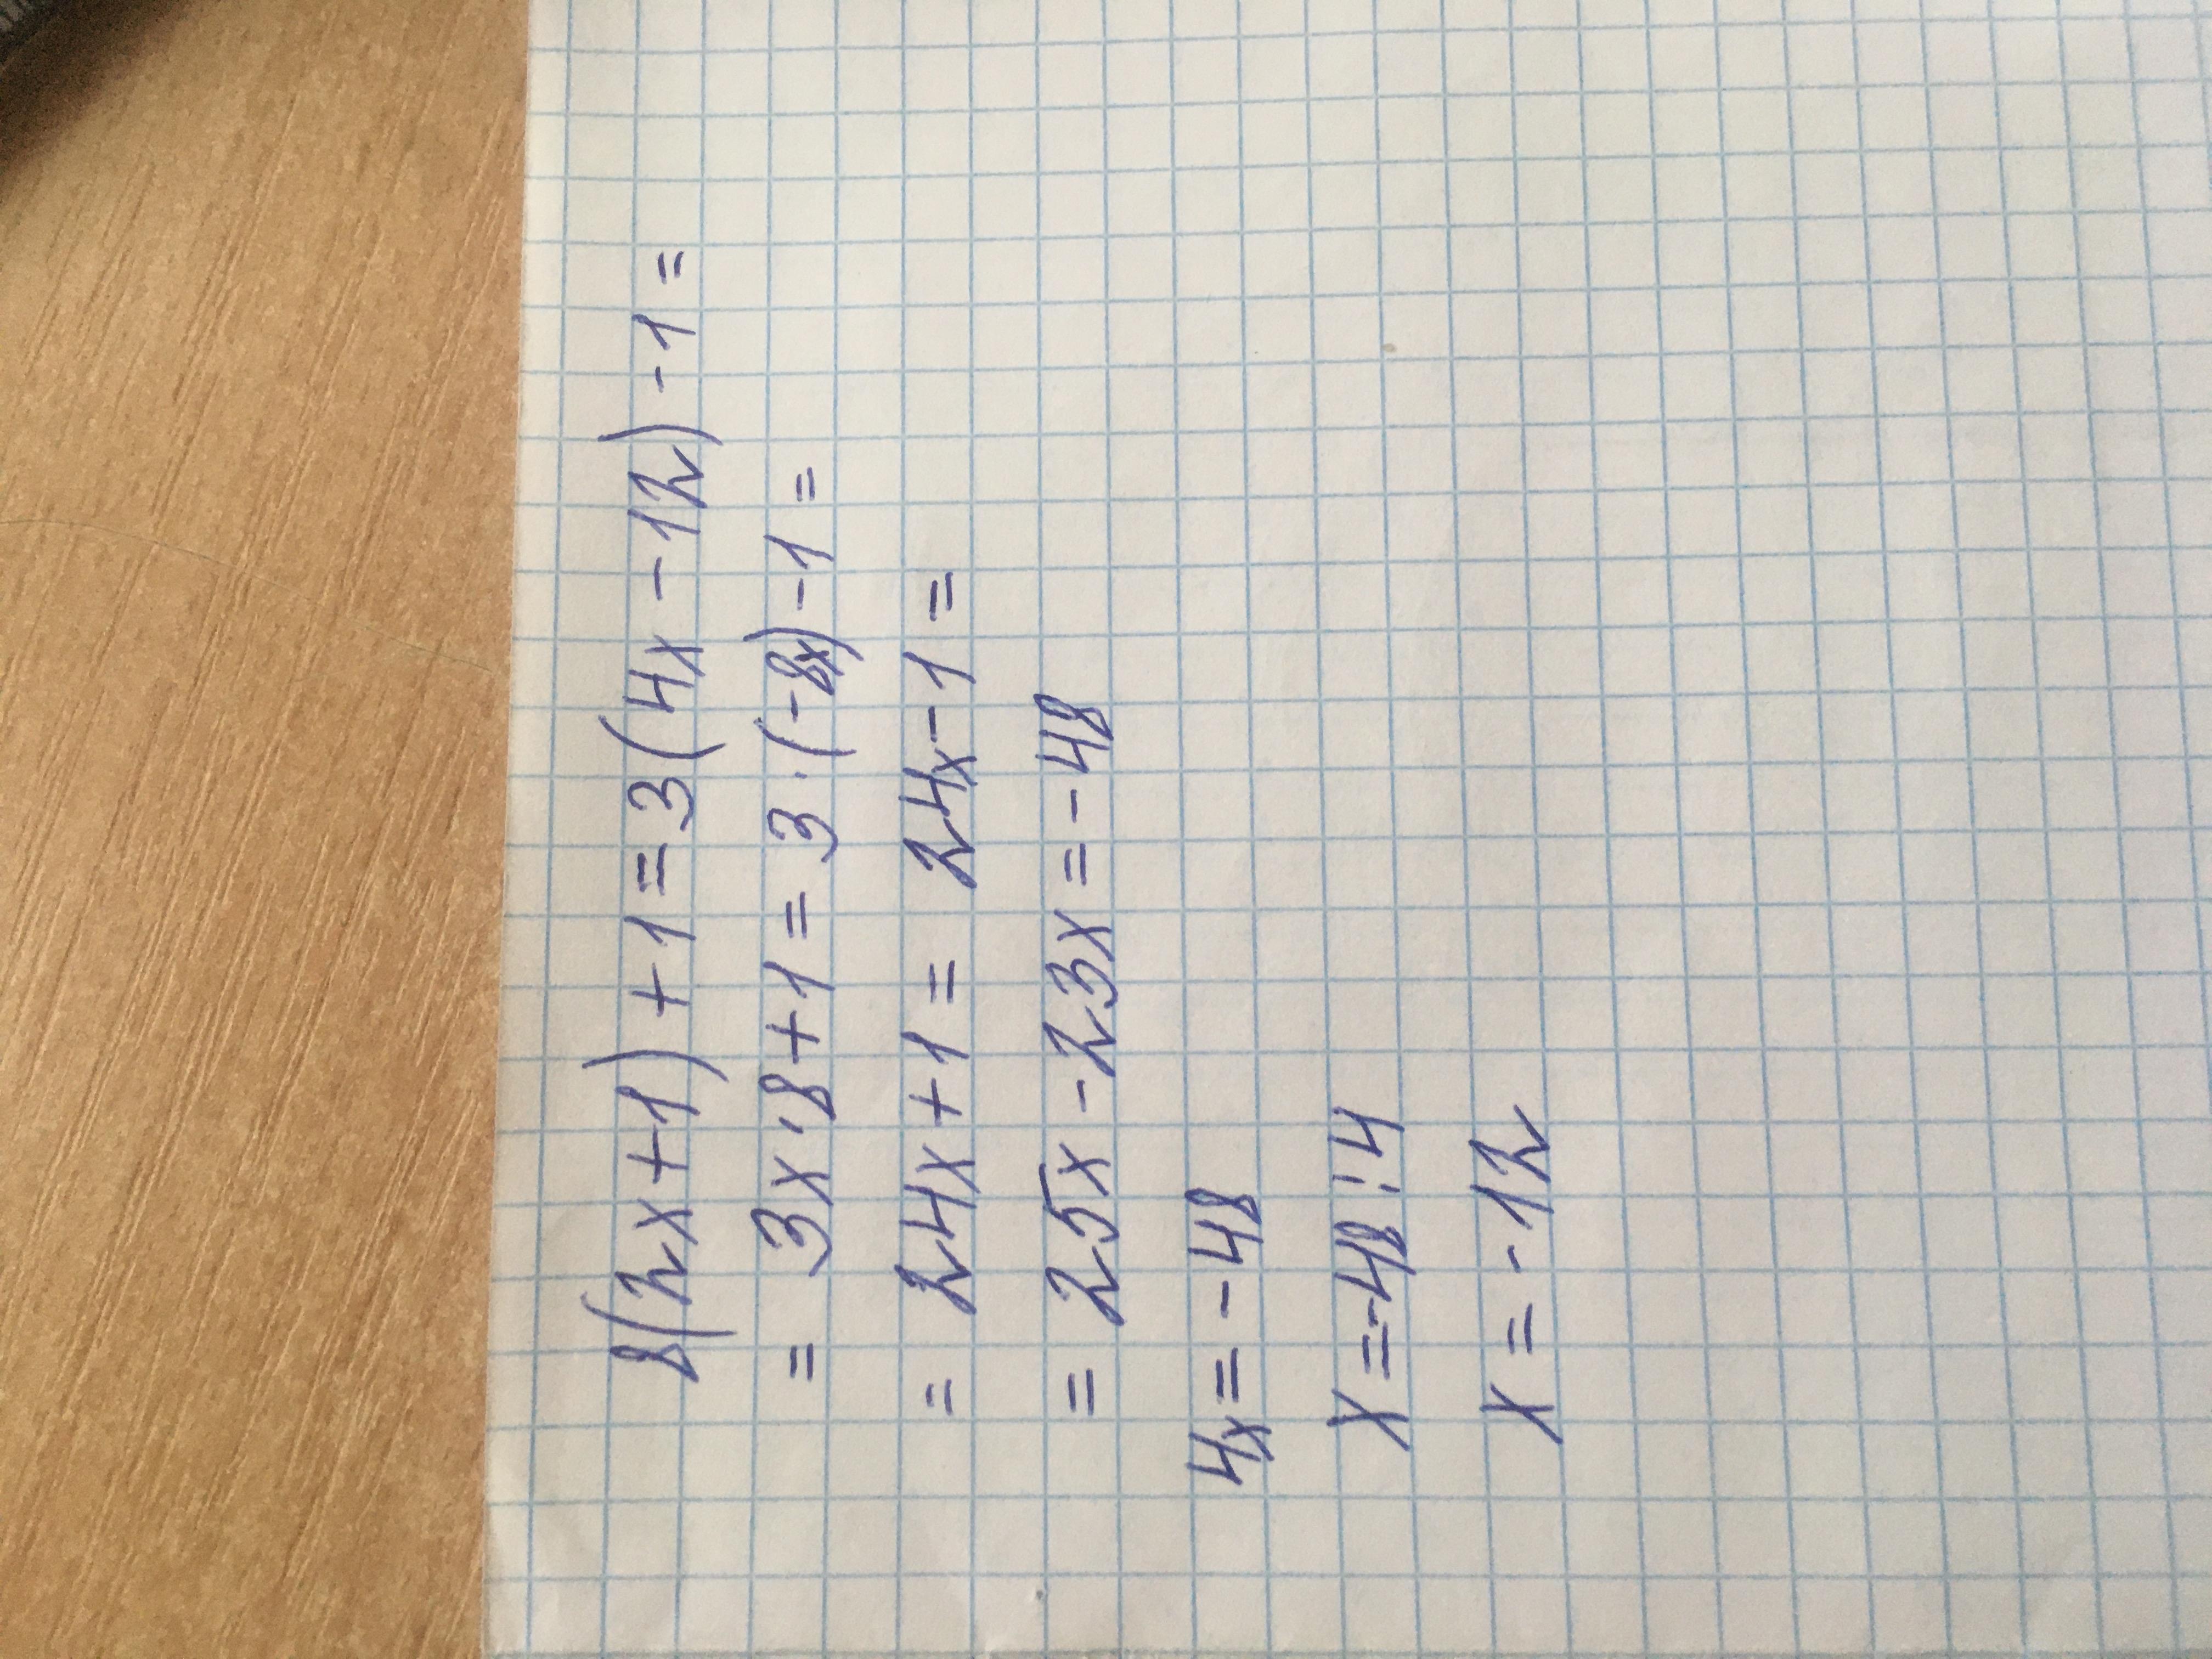 8(2x+1)+1=3(4x-12)-1=
= 3x·8+1=3·(-8x)-1=
= 24x+1= 24x-1=
= 25x-23x=-48
4x=-48
x=-48:4
x=-12